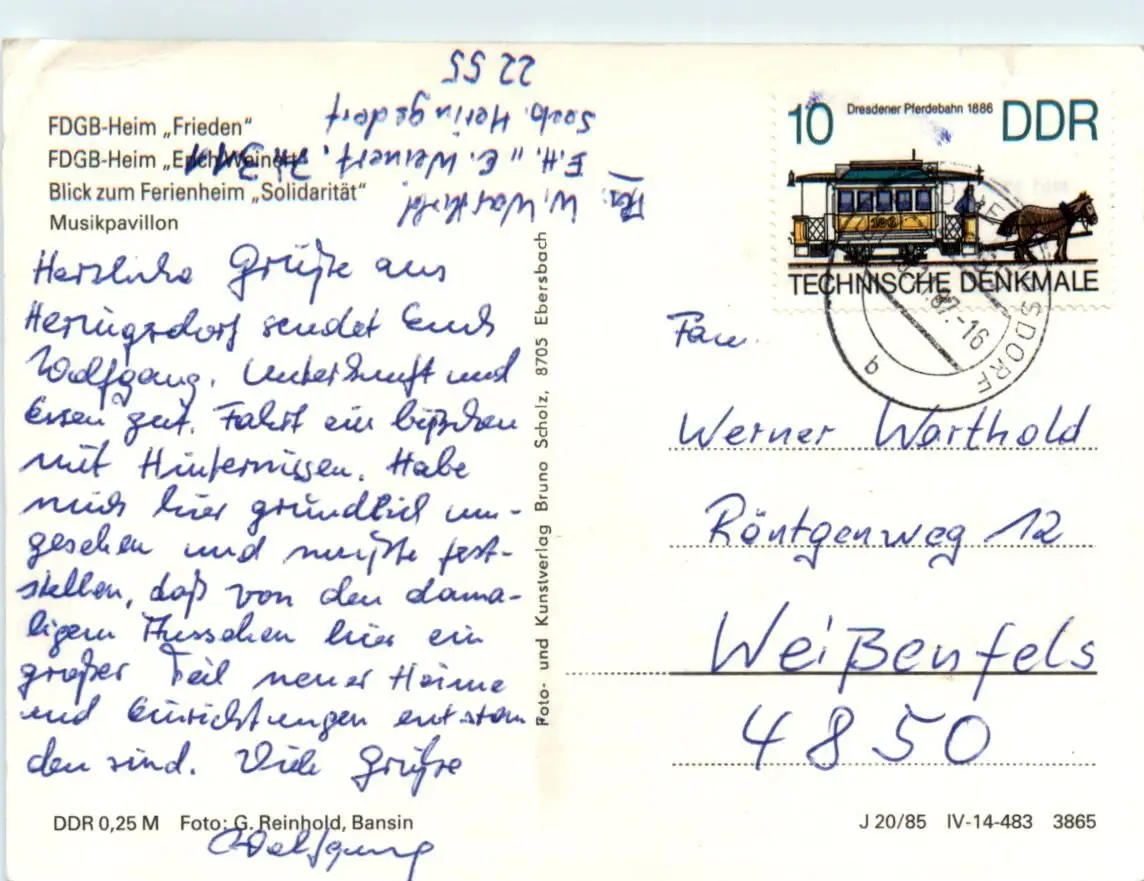 FDGB-Heim „Frieden“
FDGB-Heim „Erich Weinert“
Blick zum Ferienheim „Solidarität“
Musikpavillon
W. Warthold
F.H. „E. Weinert“,
Seeb. Heringsdorf
22 55
Herzliche Grüße aus
Heringsdorf sendet Euch
Wolfgang. Unterkunft und
Essen gut. Fahrt ein bißchen
mit Hinternissen. Habe
mich hier gründlich um-
gesehen und mußte fest-
stellen, daß von den dama-
ligem Aussehen hier ein
großer Teil neuer Heime
und Einrichtungen entstan
den sind. Viele Grüße
Wolfgang
DDR 0,25 M Foto: G. Reinhold, Bansin
Foto- und Kunstverlag Bruno Scholz, 8705 Ebersbach
10 Dresdener Pferdebahn 1886 DDR
TECHNISCHE DENKMALE
87.-16
SDORF
b
Fam.
Werner Warthold
Röntgenweg 12
Weißenfels
4850
J 20/85 IV-14-483 3865